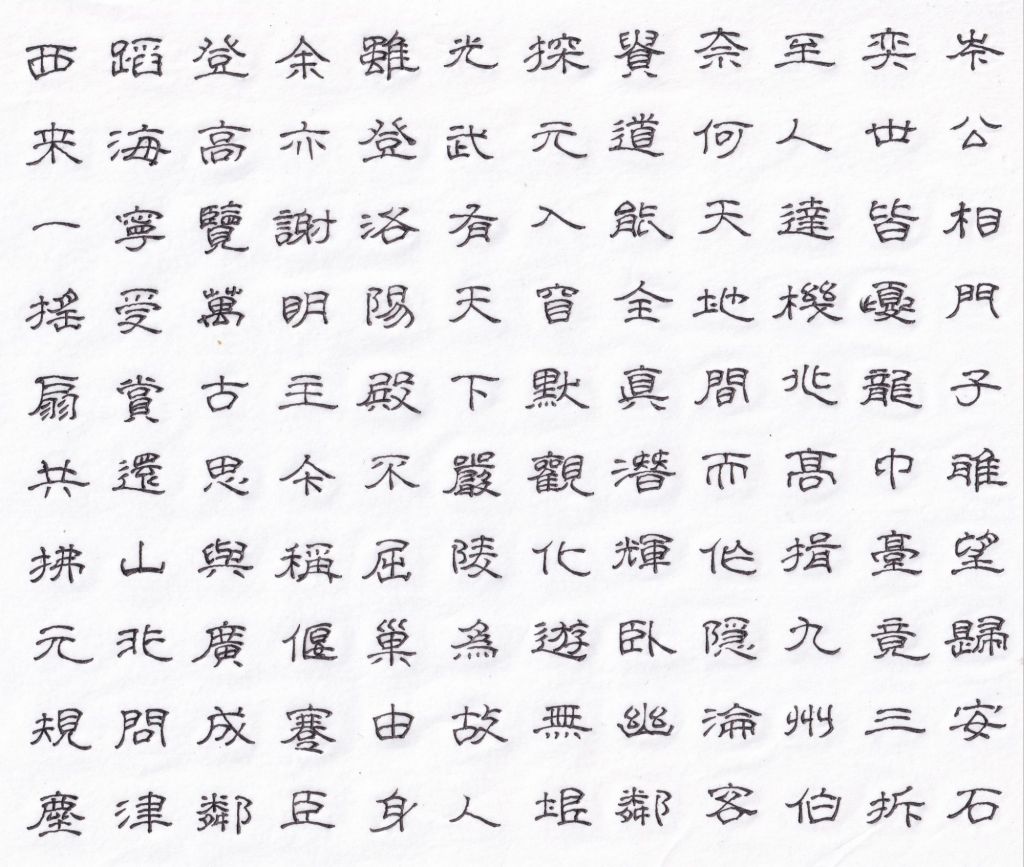 岑公相門子雅望歸安石
奕世皆夔龍中臺竟三拆
至人達機兆高揖九州伯
奈何天地間而作隱淪客
貴道能全真潛輝臥幽鄰
探元入窅默觀化遊無垠
光武有天下嚴陵為故人
雖登洛陽殿不屈巢由身
余亦謝明主今稱偃蹇臣
登高覽萬古思與廣成鄰
蹈海寧受賞還山非問津
西来一搖扇共拂元規塵